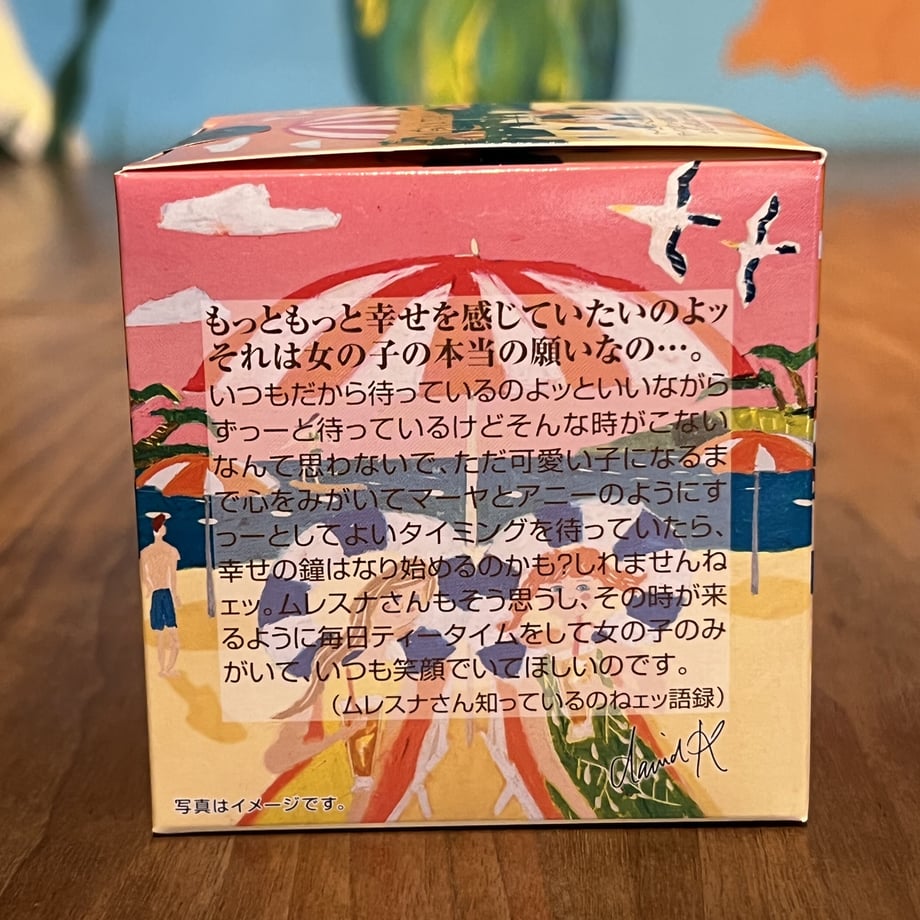 もっともっと幸せを感じていたいのよッ
それは女の子の本当の願いなの…。
いつもだから待っているのよッといいながら
ずっーと待っているけどそんな時がこない
なんて思わないで、ただ可愛い子になるま
で心をみがいてマーヤとアニーのようにす
っーとしてよいタイミングを待っていたら、
幸せの鐘はなり始めるのかも?しれませんね
ェッ。ムレスナさんもそう思うし、その時が来
るように毎日ティータイムをして女の子のみ
がいて、いつも笑顔でいてほしいのです。
（ムレスナさん知っているのねェッ語録）
david K
写真はイメージです。